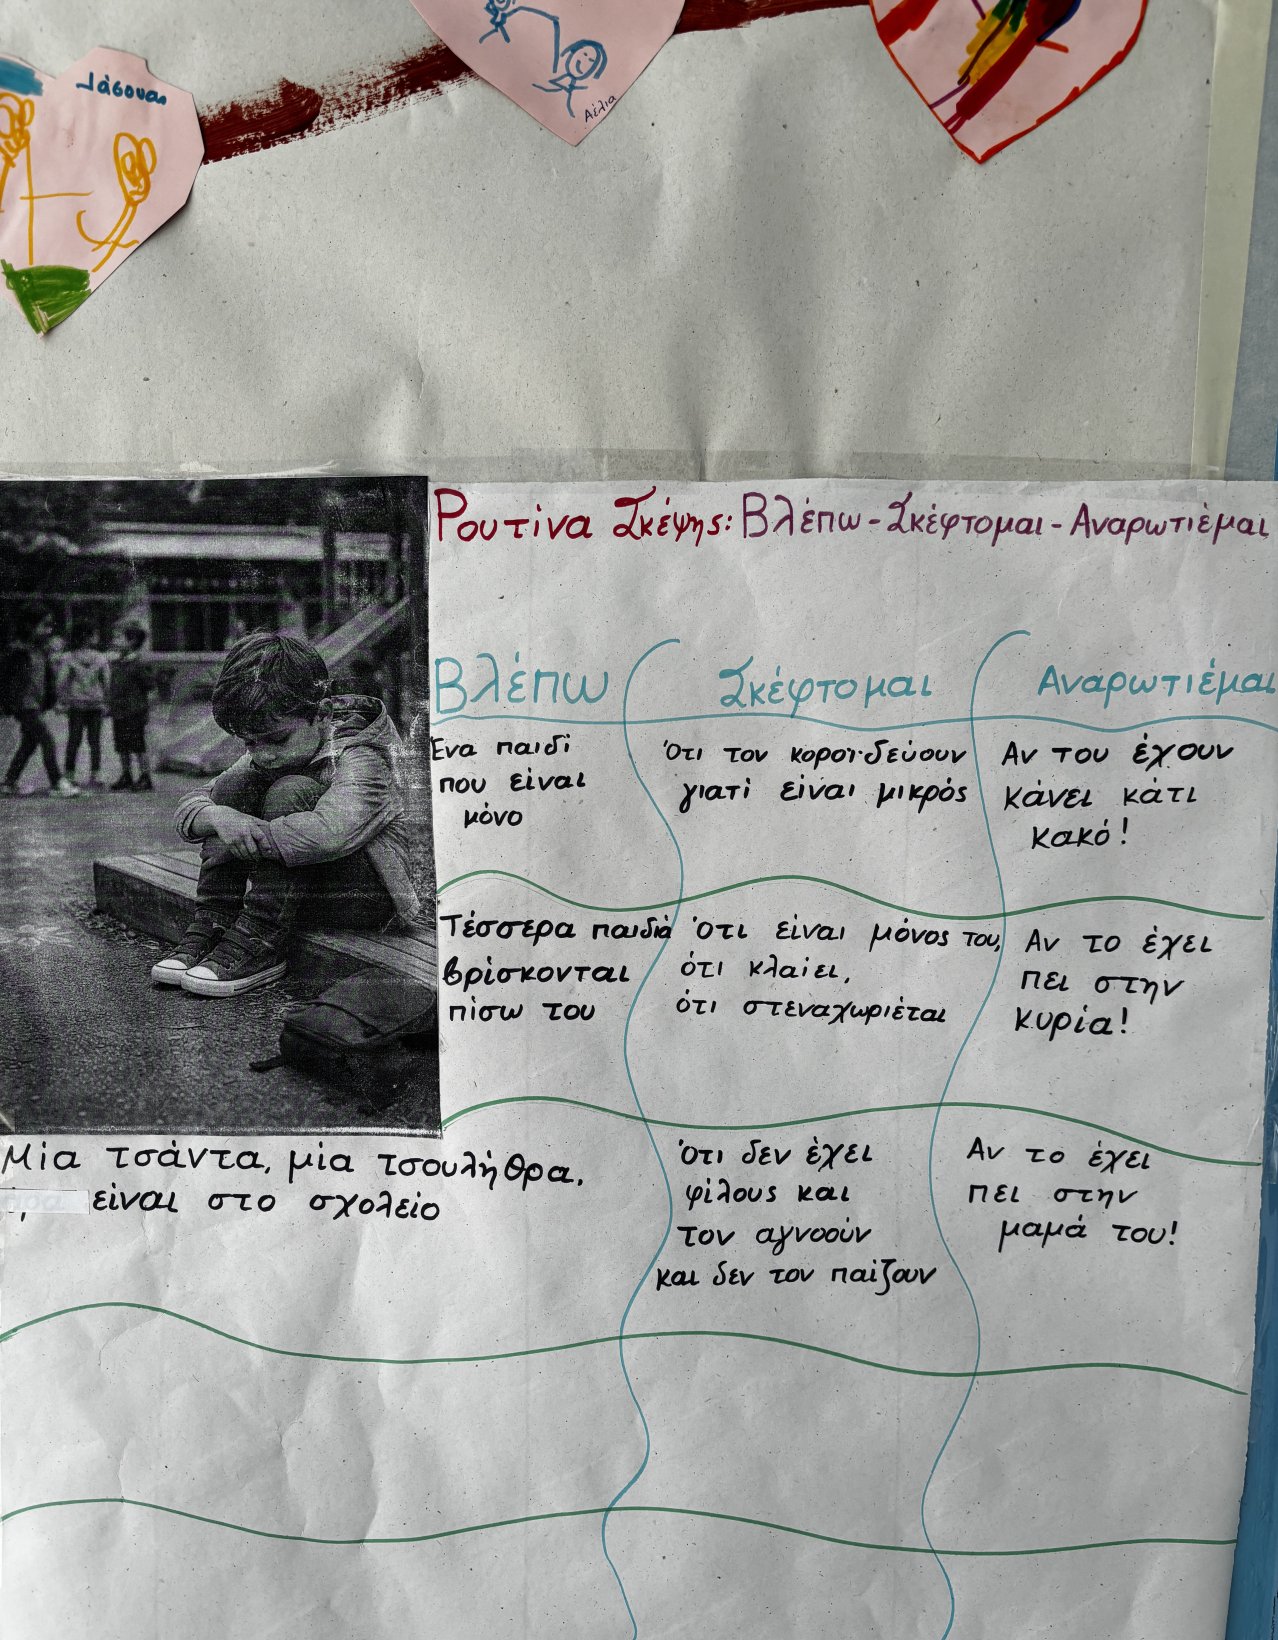 Ιάσονας
Αέλια
Ρουτίνα Σκέψης: Βλέπω - Σκέφτομαι - Αναρωτιέμαι
Βλέπω
Σκέφτομαι
Αναρωτιέμαι
Ένα παιδί
που είναι
μόνο
Ότι τον κοροϊδεύουν
γιατί είναι μικρός
Αν του έχουν
κάνει κάτι
κακό!
Τέσσερα παιδιά
βρίσκονται
πίσω του
Ότι είναι μόνος του,
ότι κλαίει,
ότι στεναχωριέται
Αν το έχει
πει στην
κυρία!
Μία τσάντα, μία τσουλήθρα,
είναι στο σχολείο
Ότι δεν έχει
φίλους και
τον αγνοούν
και δεν τον παίζουν
Αν το έχει
πει στην
μαμά του!